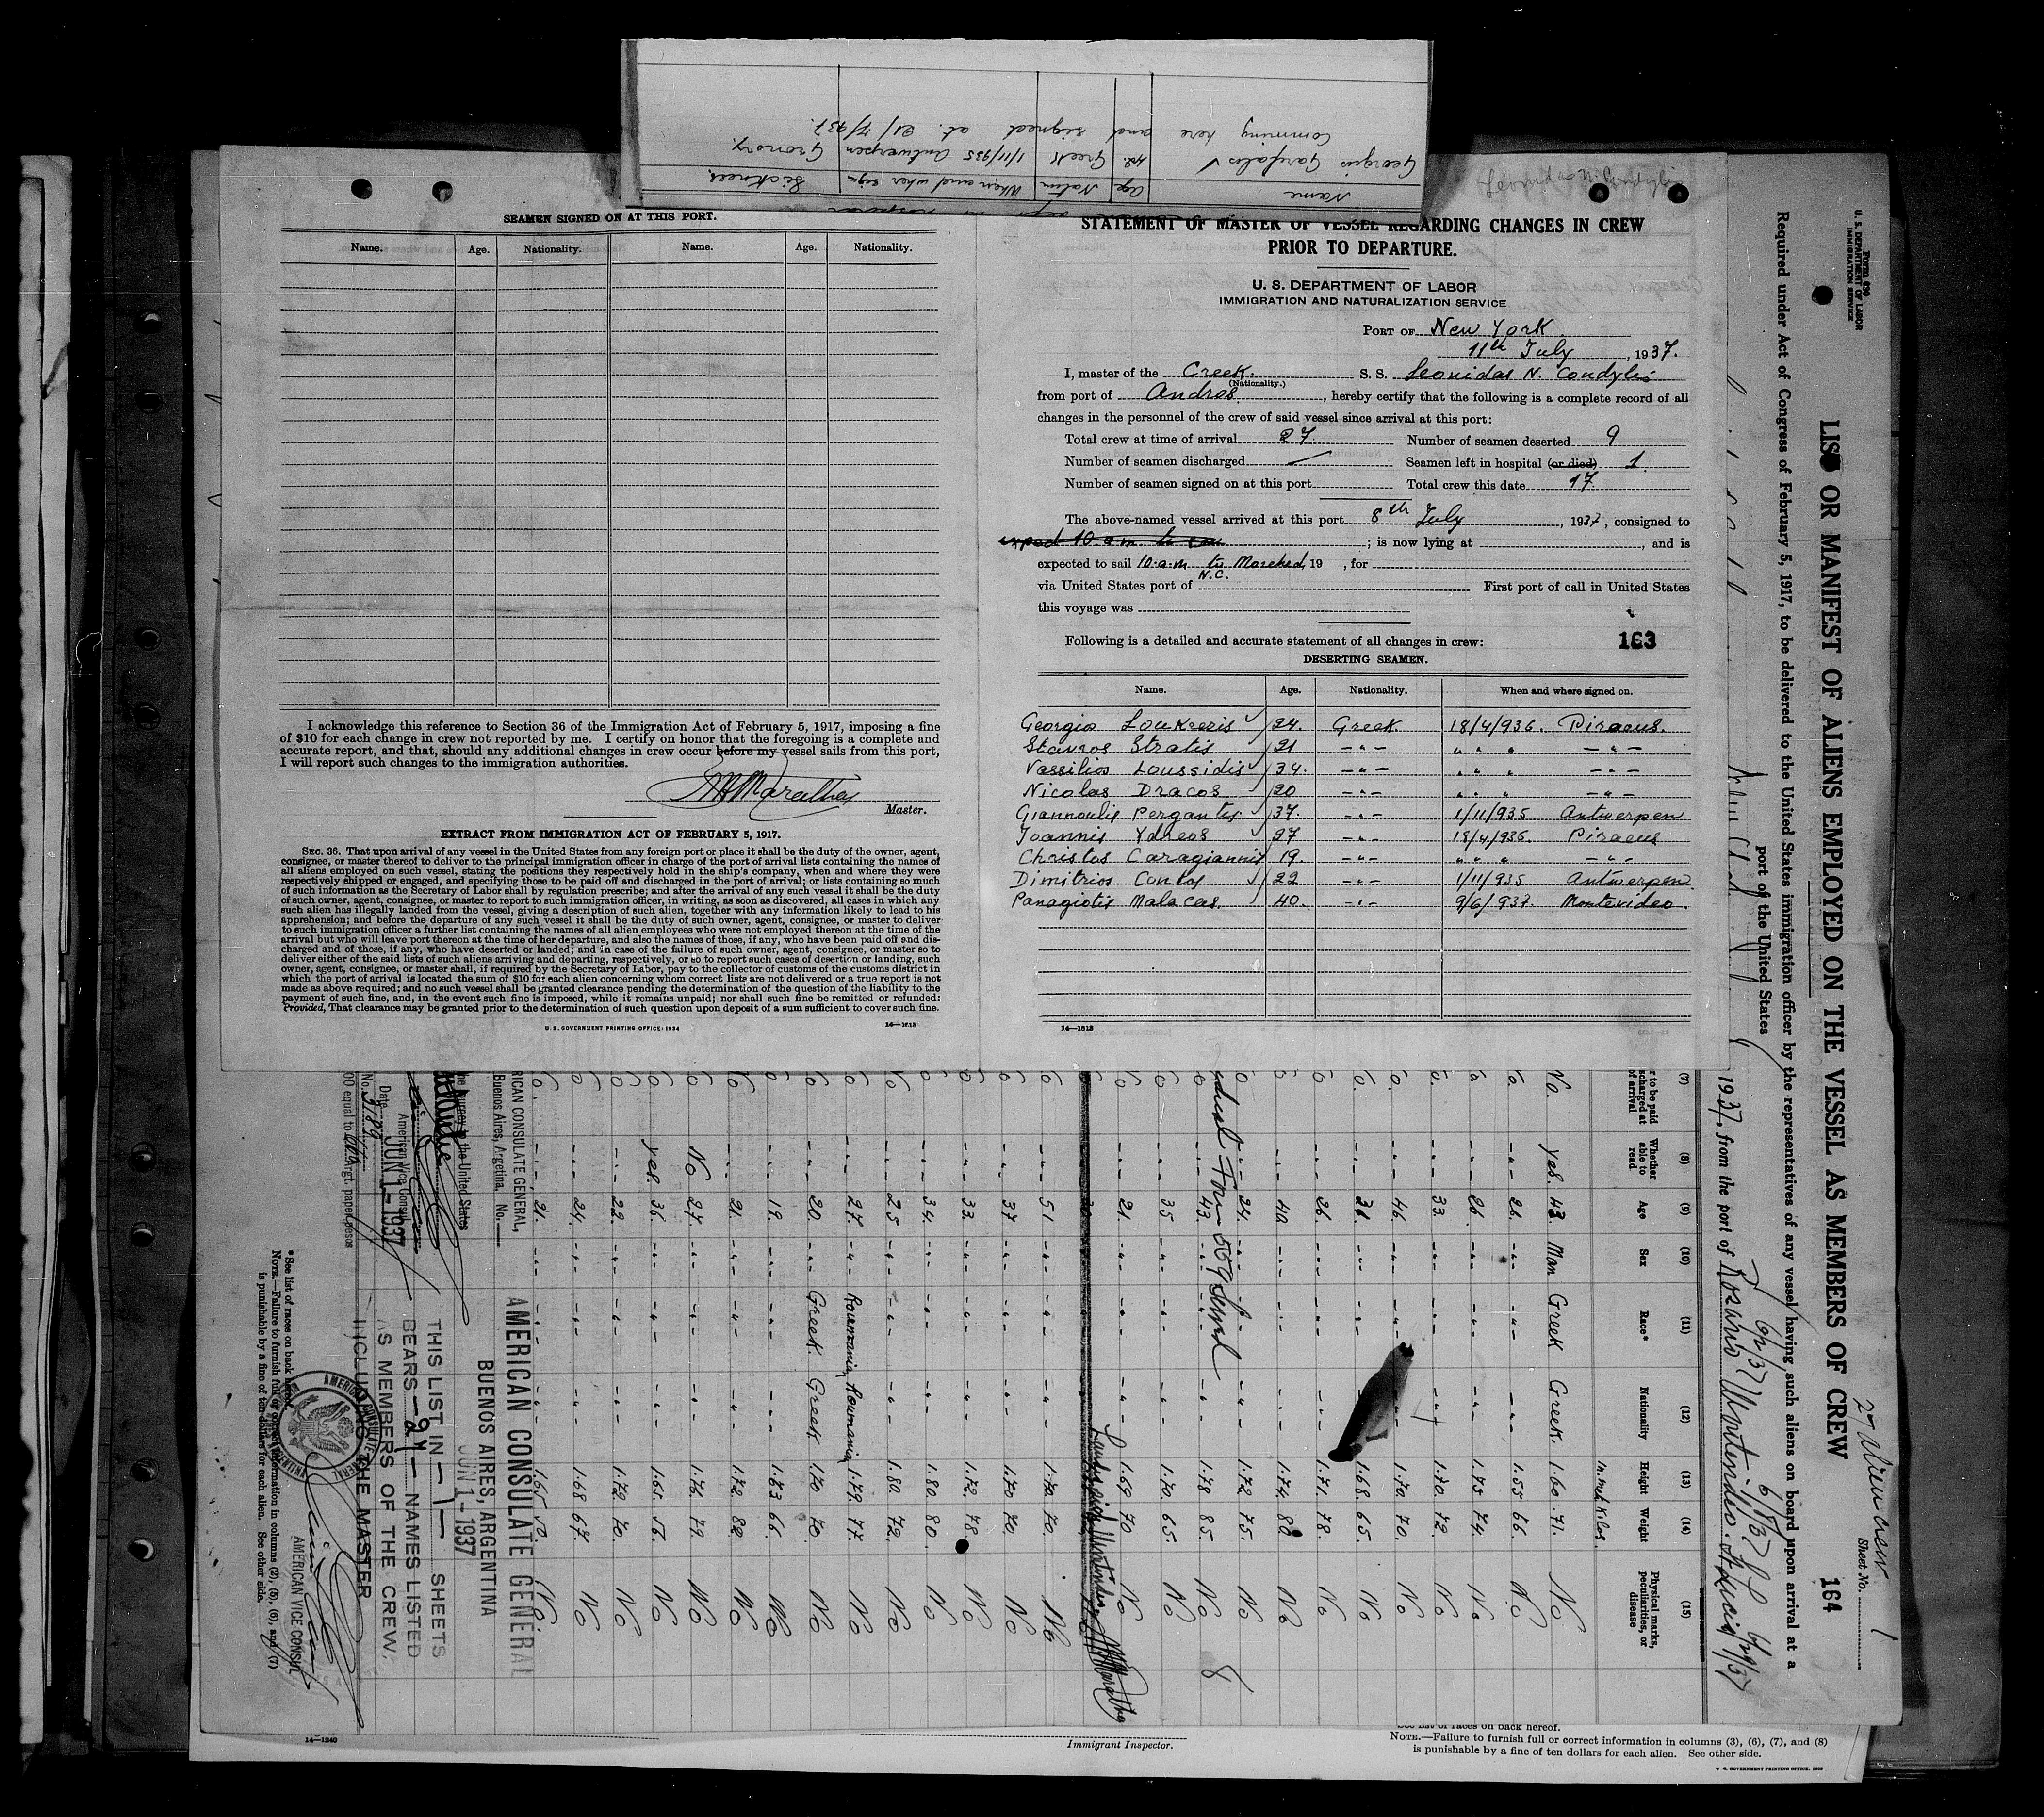 Name Age Natin When and wher sign Sickness.
Georgios Garifalos 42. Greek 1/11/935 Antwerpen
Comming here and signed at
SEAMEN SIGNED ON AT THIS PORT.
Name. Age. Nationality. Name. Age. Nationality.
I acknowledge this reference to Section 36 of the Immigration Act of February 5, 1917, imposing a fine
of $10 for each change in crew not reported by me. I certify on honor that the foregoing is a complete and
accurate report, and that, should any additional changes in crew occur before my vessel sails from this port,
I will report such changes to the immigration authorities.
Master.
EXTRACT FROM IMMIGRATION ACT OF FEBRUARY 5, 1917.
SEC. 36. That upon arrival of any vessel in the United States from any foreign port or place it shall be the duty of the owner, agent,
consignee, or master thereof to deliver to the principal immigration officer in charge of the port of arrival lists containing the names of
all aliens employed on such vessel, stating the positions they respectively hold in the ship's company, when and where they were
respectively shipped or engaged, and specifying those to be paid off and discharged in the port of arrival; or lists containing so much
of such information as the Secretary of Labor shall by regulation prescribe; and after the arrival of any such vessel it shall be the duty
of such owner, agent, consignee, or master to report to such immigration officer, in writing, as soon as discovered, all cases in which any
such alien has illegally landed from the vessel, giving a description of such alien, together with any information likely to lead to his
apprehension; and before the departure of any such vessel it shall be the duty of such owner, agent, consignee, or master to deliver
to such immigration officer a further list containing the names of all alien employees who were not employed thereon at the time of the
arrival but who will leave port thereon at the time of her departure, and also the names of those, if any, who have been paid off and dis-
charged and of those, if any, who have deserted or landed; and in case of the failure of such owner, agent, consignee, or master so to
deliver either of the said lists of such aliens arriving and departing, respectively, or so to report such cases of desertion or landing, such
owner, agent, consignee, or master shall, if required by the Secretary of Labor, pay to the collector of customs of the customs district in
which the port of arrival is located the sum of $10 for each alien concerning whom correct lists are not delivered or a true report is not
made as above required; and no such vessel shall be granted clearance pending the determination of the question of the liability to the
payment of such fine, and, in the event such fine is imposed, while it remains unpaid; nor shall such fine be remitted or refunded:
Provided, That clearance may be granted prior to the determination of such question upon deposit of a sum sufficient to cover such fine.
U. S. GOVERNMENT PRINTING OFFICE: 1934
STATEMENT OF MASTER OF VESSEL REGARDING CHANGES IN CREW
PRIOR TO DEPARTURE.
U. S. DEPARTMENT OF LABOR
IMMIGRATION AND NATURALIZATION SERVICE
PORT OF New York
11th July, 1937.
I, master of the Creek. S. S. Leonidas N. Condylis
(Nationality.)
from port of Andros, hereby certify that the following is a complete record of all
changes in the personnel of the crew of said vessel since arrival at this port:
Total crew at time of arrival 27. Number of seamen deserted 9
Number of seamen discharged — Seamen left in hospital (or died) 1.
Number of seamen signed on at this port Total crew this date 17
The above-named vessel arrived at this port 8th July, 1937, consigned to
; is now lying at , and is
expected to sail 10.a.m to Morehed, 19 , for
N.C.
via United States port of First port of call in United States
this voyage was
Following is a detailed and accurate statement of all changes in crew: 163
DESERTING SEAMEN.
Name. Age. Nationality. When and where signed on.
Georgio Loukrezis 24. Greek. 18/4/936. Piraeus.
Stavros Stratis 21 -"- " " " -"-
Vassilios Loussidis 34. -"- " " " -"-
Nicolas Dracos 20 -"- " " " -"-
Giannoulis Pergantis 37. -"- 1/11/935 Antwerpen
Joannis Ydreos 27 -"- 18/4/936. Piraeus
Christos Caragiannis 19. -"- " " " -"-
Dimitrios Contos 22 -"- 1/11/935 Antwerpen
Panagiotis Malacas. 40. -"- 9/6/937. Montevideo.
14—1613
Form 680
U. S. DEPARTMENT OF LABOR
IMMIGRATION SERVICE
27 Alien crew
Sheet No. 1
164
LIST OR MANIFEST OF ALIENS EMPLOYED ON THE VESSEL AS MEMBERS OF CREW
Required under Act of Congress of February 5, 1917, to be delivered to the United States immigration officer by the representatives of any vessel having such aliens on board upon arrival at a
port of the United States
1937, from the port of Rosario Montevideo. St Lucia
(7) (8) (9) (10) (11) (12) (13) (14) (15)
Whether able to read Age Sex Race* Nationality Height Weight Physical marks, peculiarities, or disease
No. yes. 43. Man Greek Greek. 1.60. 71. No
26. 1.55 66. No
26. 1.75 74. No
33. 1.70. 72. No
46. 1.70. 70. No
31. 1.68. 65. No
26. 1.71. 78. No
40. 1.74. 80 No
24. 1.72 75. No
43. 1.78 85. No
35. 1.70. 65. No
21. 1.69 70 No
51. 1.70 70. No
37. 1.70 70. No
33. 1.72. 78. No
34. 1.80. 80. No
25. 1.80. 72. No
27. Roumania Roumania 1.79. 77. No
20. Greek. Greek 1.70 70. No
19. 1.73 66. No
21. 1.72. 82. No
No 27. 1.76. 79. No
yes. 36. 1.65. 56. No
22. 1.72. 70. No
24. 1.68 67. No
21. 1.65 50. No
AMERICAN CONSULATE GENERAL
BUENOS AIRES, ARGENTINA
JUN 1-1937
THIS LIST IN —1— SHEETS
BEARS NAMES LISTED
AS MEMBERS OF THE CREW.
INCLUDING THE MASTER
AMERICAN VICE CONSUL
RICAN CONSULATE GENERAL,
Buenos Aires, Argetina. No.
the journey to the United States
American Vice Consul
Date JUN 1-1937
No. 3789
00 equal to Argt. paper pesos
*See list of races on back hereof.
NOTE.—Failure to furnish full or correct information in columns (2), (5), (6), and (7)
is punishable by a fine of ten dollars for each alien. See other side.
14—1240
Immigrant Inspector.
See list of races on back hereof.
NOTE.—Failure to furnish full or correct information in columns (3), (6), (7), and (8)
is punishable by a fine of ten dollars for each alien. See other side.